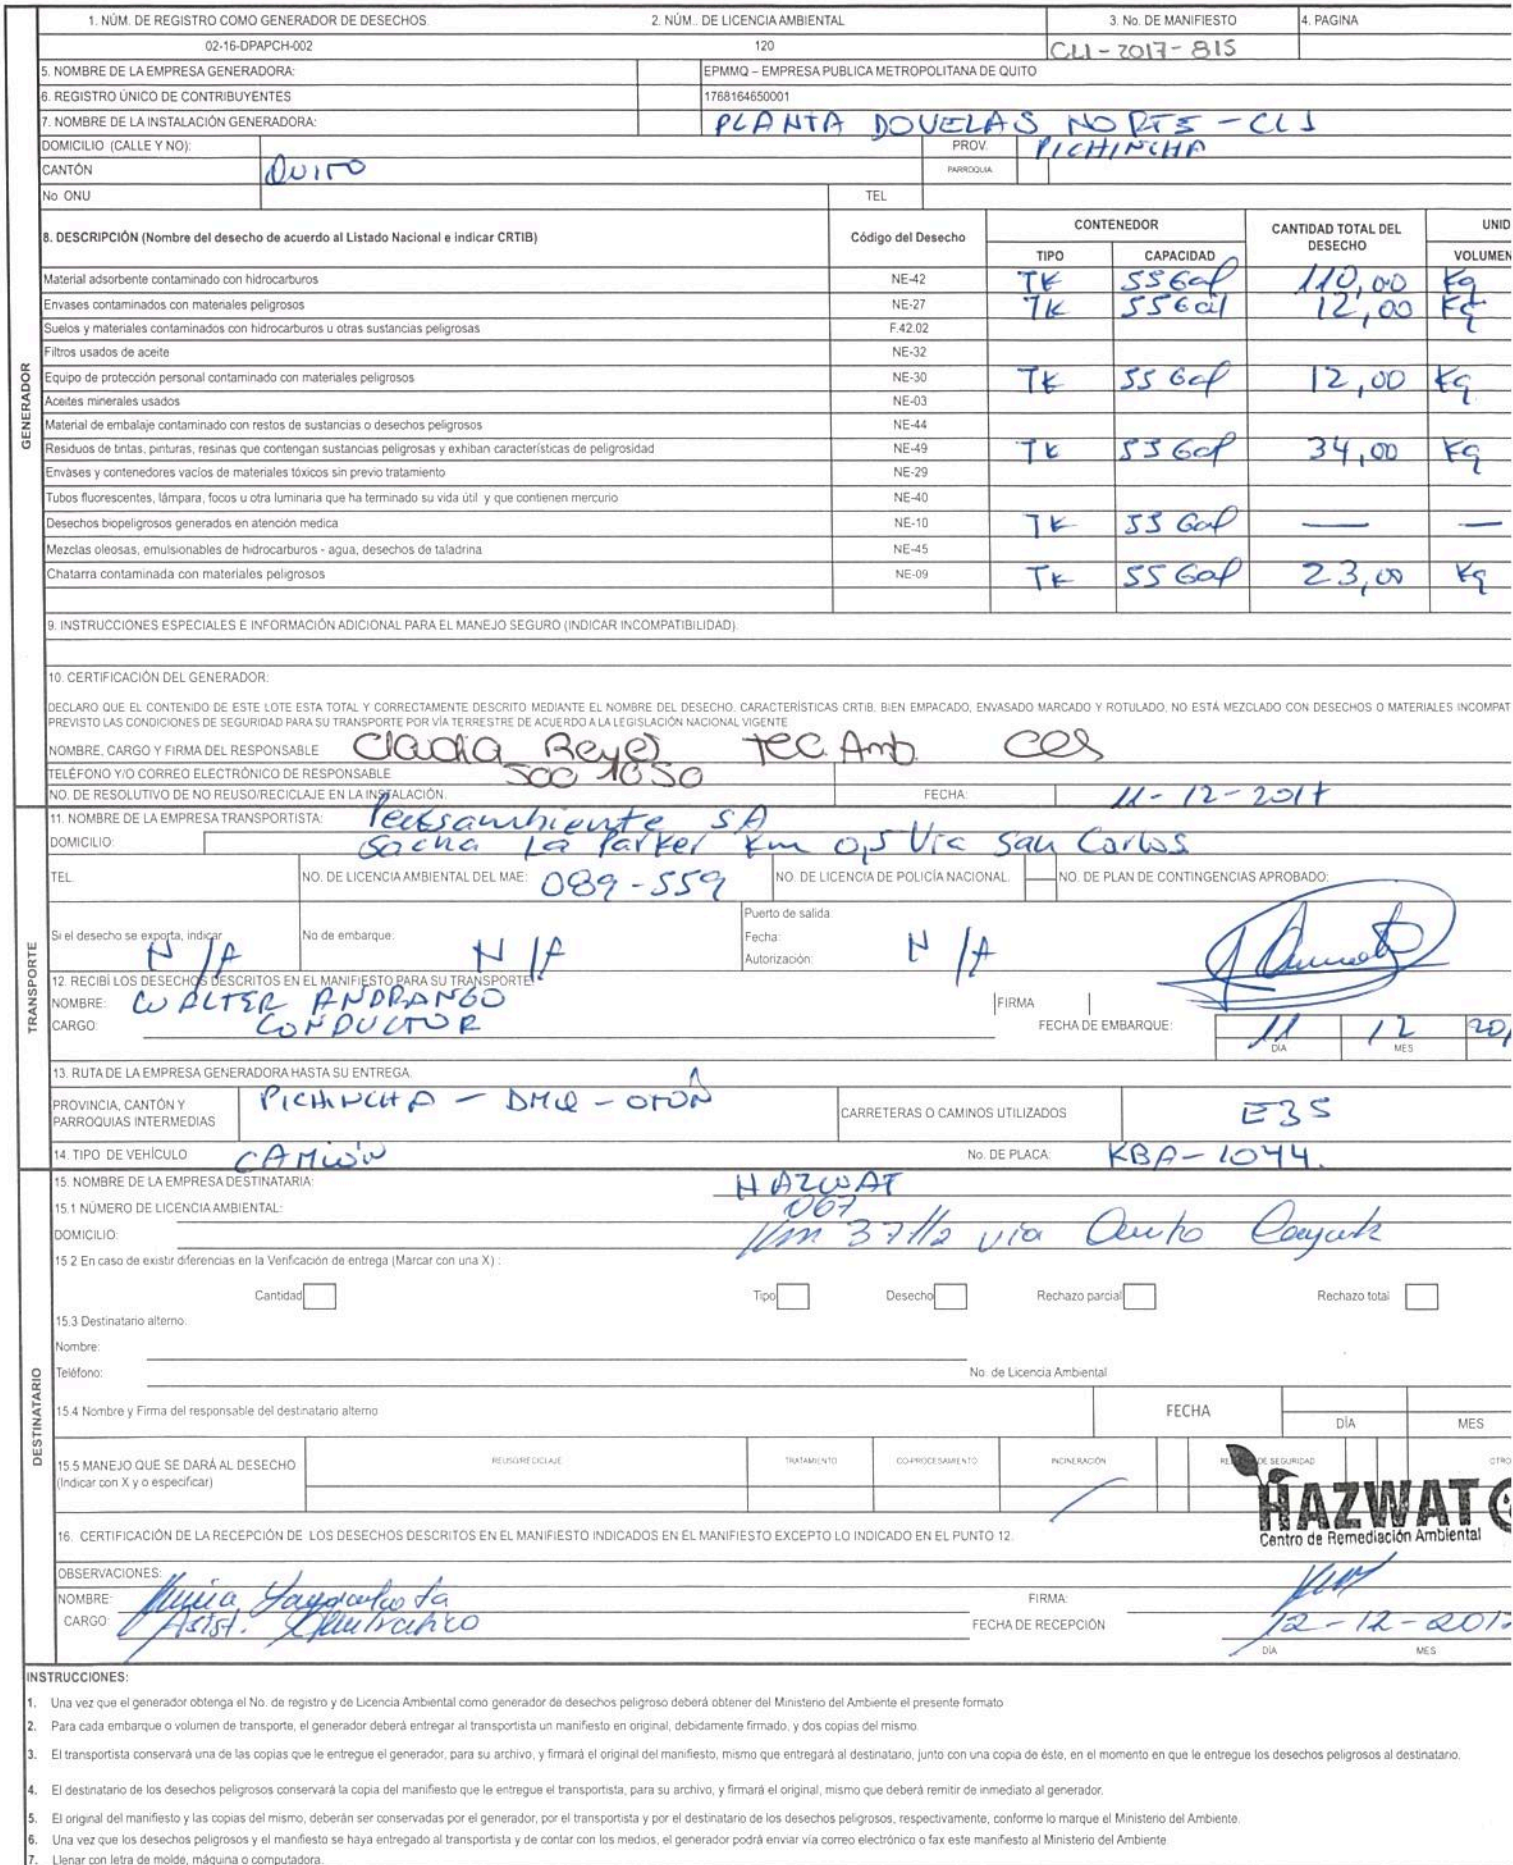 1. NÚM. DE REGISTRO COMO GENERADOR DE DESECHOS. 2. NÚM.. DE LICENCIA AMBIENTAL 3. No. DE MANIFIESTO 4. PAGINA
02-16-DPAPCH-002 120 CL1-2017-815
5. NOMBRE DE LA EMPRESA GENERADORA: EPMMQ – EMPRESA PUBLICA METROPOLITANA DE QUITO
6. REGISTRO ÚNICO DE CONTRIBUYENTES 1768164650001
7. NOMBRE DE LA INSTALACIÓN GENERADORA: PLANTA DOVELAS NORTE - CL1
DOMICILIO (CALLE Y NO): PROV. PICHINCHA
CANTÓN QUITO PARROQUIA
No ONU TEL
8. DESCRIPCIÓN (Nombre del desecho de acuerdo al Listado Nacional e indicar CRTIB) Código del Desecho CONTENEDOR CANTIDAD TOTAL DEL DESECHO UNID
TIPO CAPACIDAD VOLUMEN
Material adsorbente contaminado con hidrocarburos NE-42 TK 55 Gal 110,00 Kg
Envases contaminados con materiales peligrosos NE-27 TK 55 Gal 12,00 Kg
Suelos y materiales contaminados con hidrocarburos u otras sustancias peligrosas F.42.02
Filtros usados de aceite NE-32
Equipo de protección personal contaminado con materiales peligrosos NE-30 TK 55 Gal 12,00 Kg
Aceites minerales usados NE-03
Material de embalaje contaminado con restos de sustancias o desechos peligrosos NE-44
Residuos de tintas, pinturas, resinas que contengan sustancias peligrosas y exhiban características de peligrosidad NE-49 TK 55 Gal 34,00 Kg
Envases y contenedores vacíos de materiales tóxicos sin previo tratamiento NE-29
Tubos fluorescentes, lámpara, focos u otra luminaria que ha terminado su vida útil y que contienen mercurio NE-40
Desechos biopeligrosos generados en atención medica NE-10 TK 55 Gal — —
Mezclas oleosas, emulsionables de hidrocarburos - agua, desechos de taladrina NE-45
Chatarra contaminada con materiales peligrosos NE-09 TK 55 Gal 23,00 Kg
9. INSTRUCCIONES ESPECIALES E INFORMACIÓN ADICIONAL PARA EL MANEJO SEGURO (INDICAR INCOMPATIBILIDAD):
10. CERTIFICACIÓN DEL GENERADOR:
DECLARO QUE EL CONTENIDO DE ESTE LOTE ESTA TOTAL Y CORRECTAMENTE DESCRITO MEDIANTE EL NOMBRE DEL DESECHO, CARACTERÍSTICAS CRTIB, BIEN EMPACADO, ENVASADO MARCADO Y ROTULADO, NO ESTÁ MEZCLADO CON DESECHOS O MATERIALES INCOMPAT
PREVISTO LAS CONDICIONES DE SEGURIDAD PARA SU TRANSPORTE POR VÍA TERRESTRE DE ACUERDO A LA LEGISLACIÓN NACIONAL VIGENTE
NOMBRE, CARGO Y FIRMA DEL RESPONSABLE Cladia Reyes Tec. Amb.
TELÉFONO Y/O CORREO ELECTRÓNICO DE RESPONSABLE 500 1050
NO. DE RESOLUTIVO DE NO REUSO/RECICLAJE EN LA INSTALACIÓN. FECHA: 11-12-2017
11. NOMBRE DE LA EMPRESA TRANSPORTISTA: Pecksambiente SA
DOMICILIO: Sacha La Parker Km 0,5 Via San Carlos
TEL. NO. DE LICENCIA AMBIENTAL DEL MAE: 089-559 NO. DE LICENCIA DE POLICÍA NACIONAL. NO. DE PLAN DE CONTINGENCIAS APROBADO:
Puerto de salida
Si el desecho se exporta, indicar N/A No de embarque: N/A Fecha: N/A
Autorización:
12. RECIBÍ LOS DESECHOS DESCRITOS EN EL MANIFIESTO PARA SU TRANSPORTE:
NOMBRE: WALTER ANDRANGO FIRMA
CARGO: CONDUCTOR FECHA DE EMBARQUE: 11 12 20
DÍA MES
13. RUTA DE LA EMPRESA GENERADORA HASTA SU ENTREGA.
PROVINCIA, CANTÓN Y PARROQUIAS INTERMEDIAS PICHINCHA - DMQ - OTÓN CARRETERAS O CAMINOS UTILIZADOS E35
14. TIPO DE VEHÍCULO CAMIÓN No. DE PLACA: KBA-1044.
15. NOMBRE DE LA EMPRESA DESTINATARIA: HAZWAT
15.1 NÚMERO DE LICENCIA AMBIENTAL: 067
DOMICILIO: Km 37 1/2 via Quito Cayambe
15.2 En caso de existir diferencias en la Verificación de entrega (Marcar con una X) :
Cantidad Tipo Desecho Rechazo parcial Rechazo total
15.3 Destinatario alterno:
Nombre:
Teléfono: No. de Licencia Ambiental
15.4 Nombre y Firma del responsable del destinatario alterno FECHA DÍA MES
15.5 MANEJO QUE SE DARÁ AL DESECHO REUSO/RECICLAJE TRATAMIENTO CO-PROCESAMIENTO INCINERACIÓN DE SEGURIDAD OTRO
(Indicar con X y o especificar)
HAZWAT
Centro de Remediación Ambiental
16. CERTIFICACIÓN DE LA RECEPCIÓN DE LOS DESECHOS DESCRITOS EN EL MANIFIESTO INDICADOS EN EL MANIFIESTO EXCEPTO LO INDICADO EN EL PUNTO 12.
OBSERVACIONES:
NOMBRE: FIRMA:
CARGO: Asist. FECHA DE RECEPCIÓN 12-12-2017
DÍA MES
GENERADOR
TRANSPORTE
DESTINATARIO
INSTRUCCIONES:
1. Una vez que el generador obtenga el No. de registro y de Licencia Ambiental como generador de desechos peligroso deberá obtener del Ministerio del Ambiente el presente formato
2. Para cada embarque o volumen de transporte, el generador deberá entregar al transportista un manifiesto en original, debidamente firmado, y dos copias del mismo.
3. El transportista conservará una de las copias que le entregue el generador, para su archivo, y firmará el original del manifiesto, mismo que entregará al destinatario, junto con una copia de éste, en el momento en que le entregue los desechos peligrosos al destinatario.
4. El destinatario de los desechos peligrosos conservará la copia del manifiesto que le entregue el transportista, para su archivo, y firmará el original, mismo que deberá remitir de inmediato al generador.
5. El original del manifiesto y las copias del mismo, deberán ser conservadas por el generador, por el transportista y por el destinatario de los desechos peligrosos, respectivamente, conforme lo marque el Ministerio del Ambiente.
6. Una vez que los desechos peligrosos y el manifiesto se haya entregado al transportista y de contar con los medios, el generador podrá enviar vía correo electrónico o fax este manifiesto al Ministerio del Ambiente
7. Llenar con letra de molde, máquina o computadora.